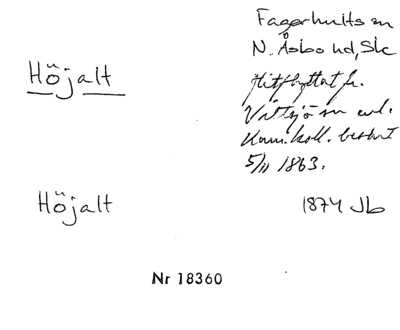 Höjalt
Fagerhults sn
N. Åsbo hd, Sk
Hitflyttat fr.
Vittsjö sn enl.
Kam. koll. beslut
5/11 1863.
Höjalt
1874 Jb
Nr 18360